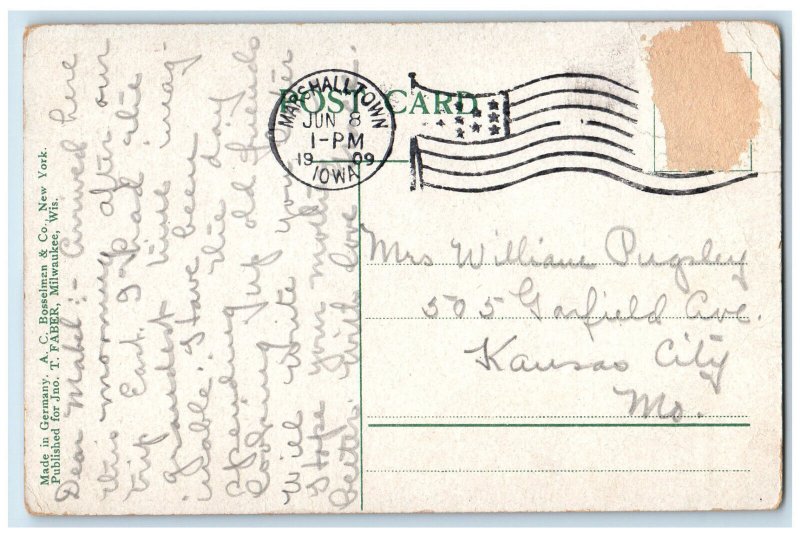 Made in Germany. A. C. Bosselman & Co., New York.
Published for Jno. T. FABER, Milwaukee, Wis.
POST CARD
MARSHALLTOWN
JUN 8
1-PM
1909
IOWA
Dear Mabel:- Arrived here
this morning after our
trip East. I had the
grandest time imag-
inable. Have been
spending the day
looking up old friends
Will write you later
Hope your mother is
better, with love
Mrs William Pugsley
505 Garfield Ave.
Kansas City
Mo.